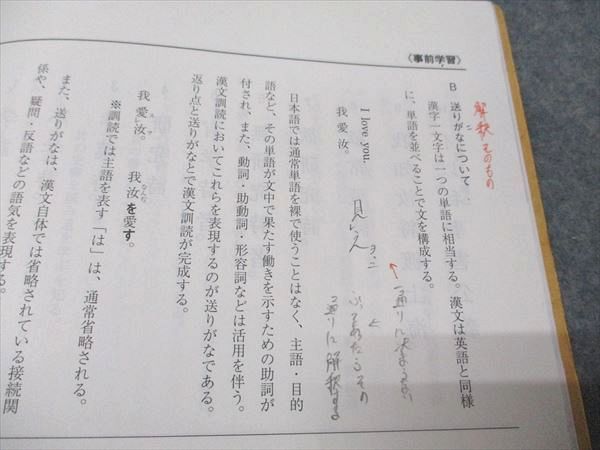 〈事前学習〉
解釈そのもの
B 送りがなについて
漢字一文字は一つの単語に相当する。漢文は英語と同様
に、単語を並べることで文を構成する。
一通りに決まらない
I love you.
我 愛 汝。
通りに解釈する
日本語では通常単語を裸で使うことはなく、主語・目的
語など、その単語が文中で果たす働きを示すための助詞が
付され、また、動詞・助動詞・形容詞などは活用を伴う。
漢文訓読においてこれらを表現するのが送りがなである。
返り点と送りがなとで漢文訓読が完成する。
我 愛レ 汝。 我 汝を愛す。
※訓読では主語を表す「は」は、通常省略される。
また、送りがなは、漢文自体では省略されている接続関
係や、疑問・反語などの語気を表現する。